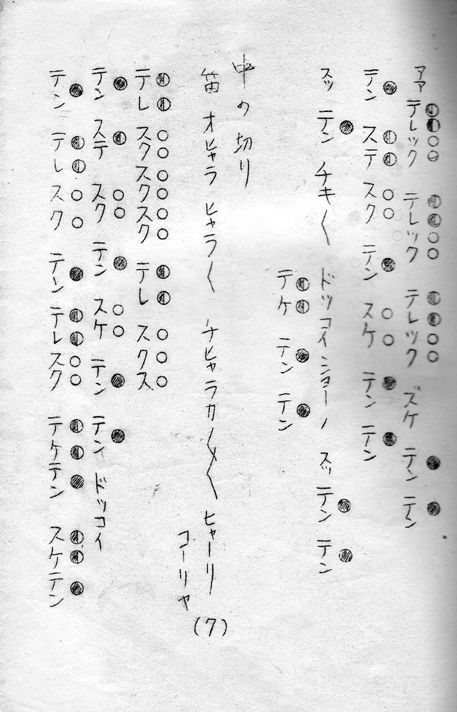 アア テレック テレック テレック ズケ テン テン
テン ステ スク テン スケ テン テン
スッ テン チキ〱 ドッコイショーノ スッ テン テン
テケ テン テン
中の切り
笛 オヒャラ ヒャラ〱 チヒャラカ〱〱 ヒャーリ
コーリャ
(7)
テレ スクスクスク テレ スクス
テン ステ スク テン スケ テン テン ドッコイ
テン テレスク テン テレスク テケテン スケテン